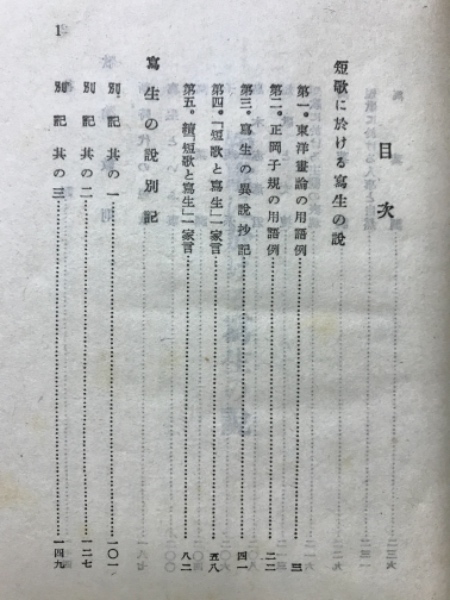 目次
短歌に於ける寫生の說
第一。東洋畫論の用語例……三
第二。正岡子規の用語例……二二
第三。寫生の異說抄記……四一
第四。「短歌と寫生」一家言……五八
第五。續「短歌と寫生」一家言……八二
寫生の說別記
別記其の一……一〇一
別記其の二……一二七
別記其の三……一四九
1